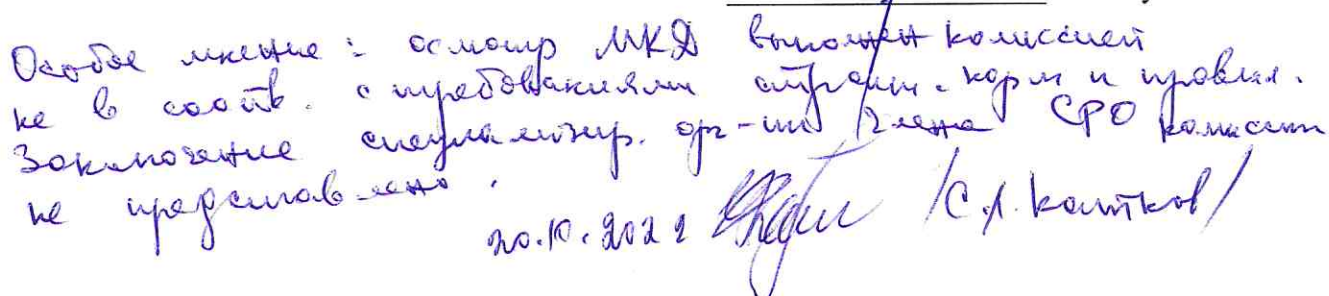 Особое мнение: осмотр МКД выполнен комиссией
не в соотв. с требованиями строит. норм и правил.
Заключение специализир. орг-ии члена СРО комиссии
не представлено.
20.10.2022 /С.Л. Катков/